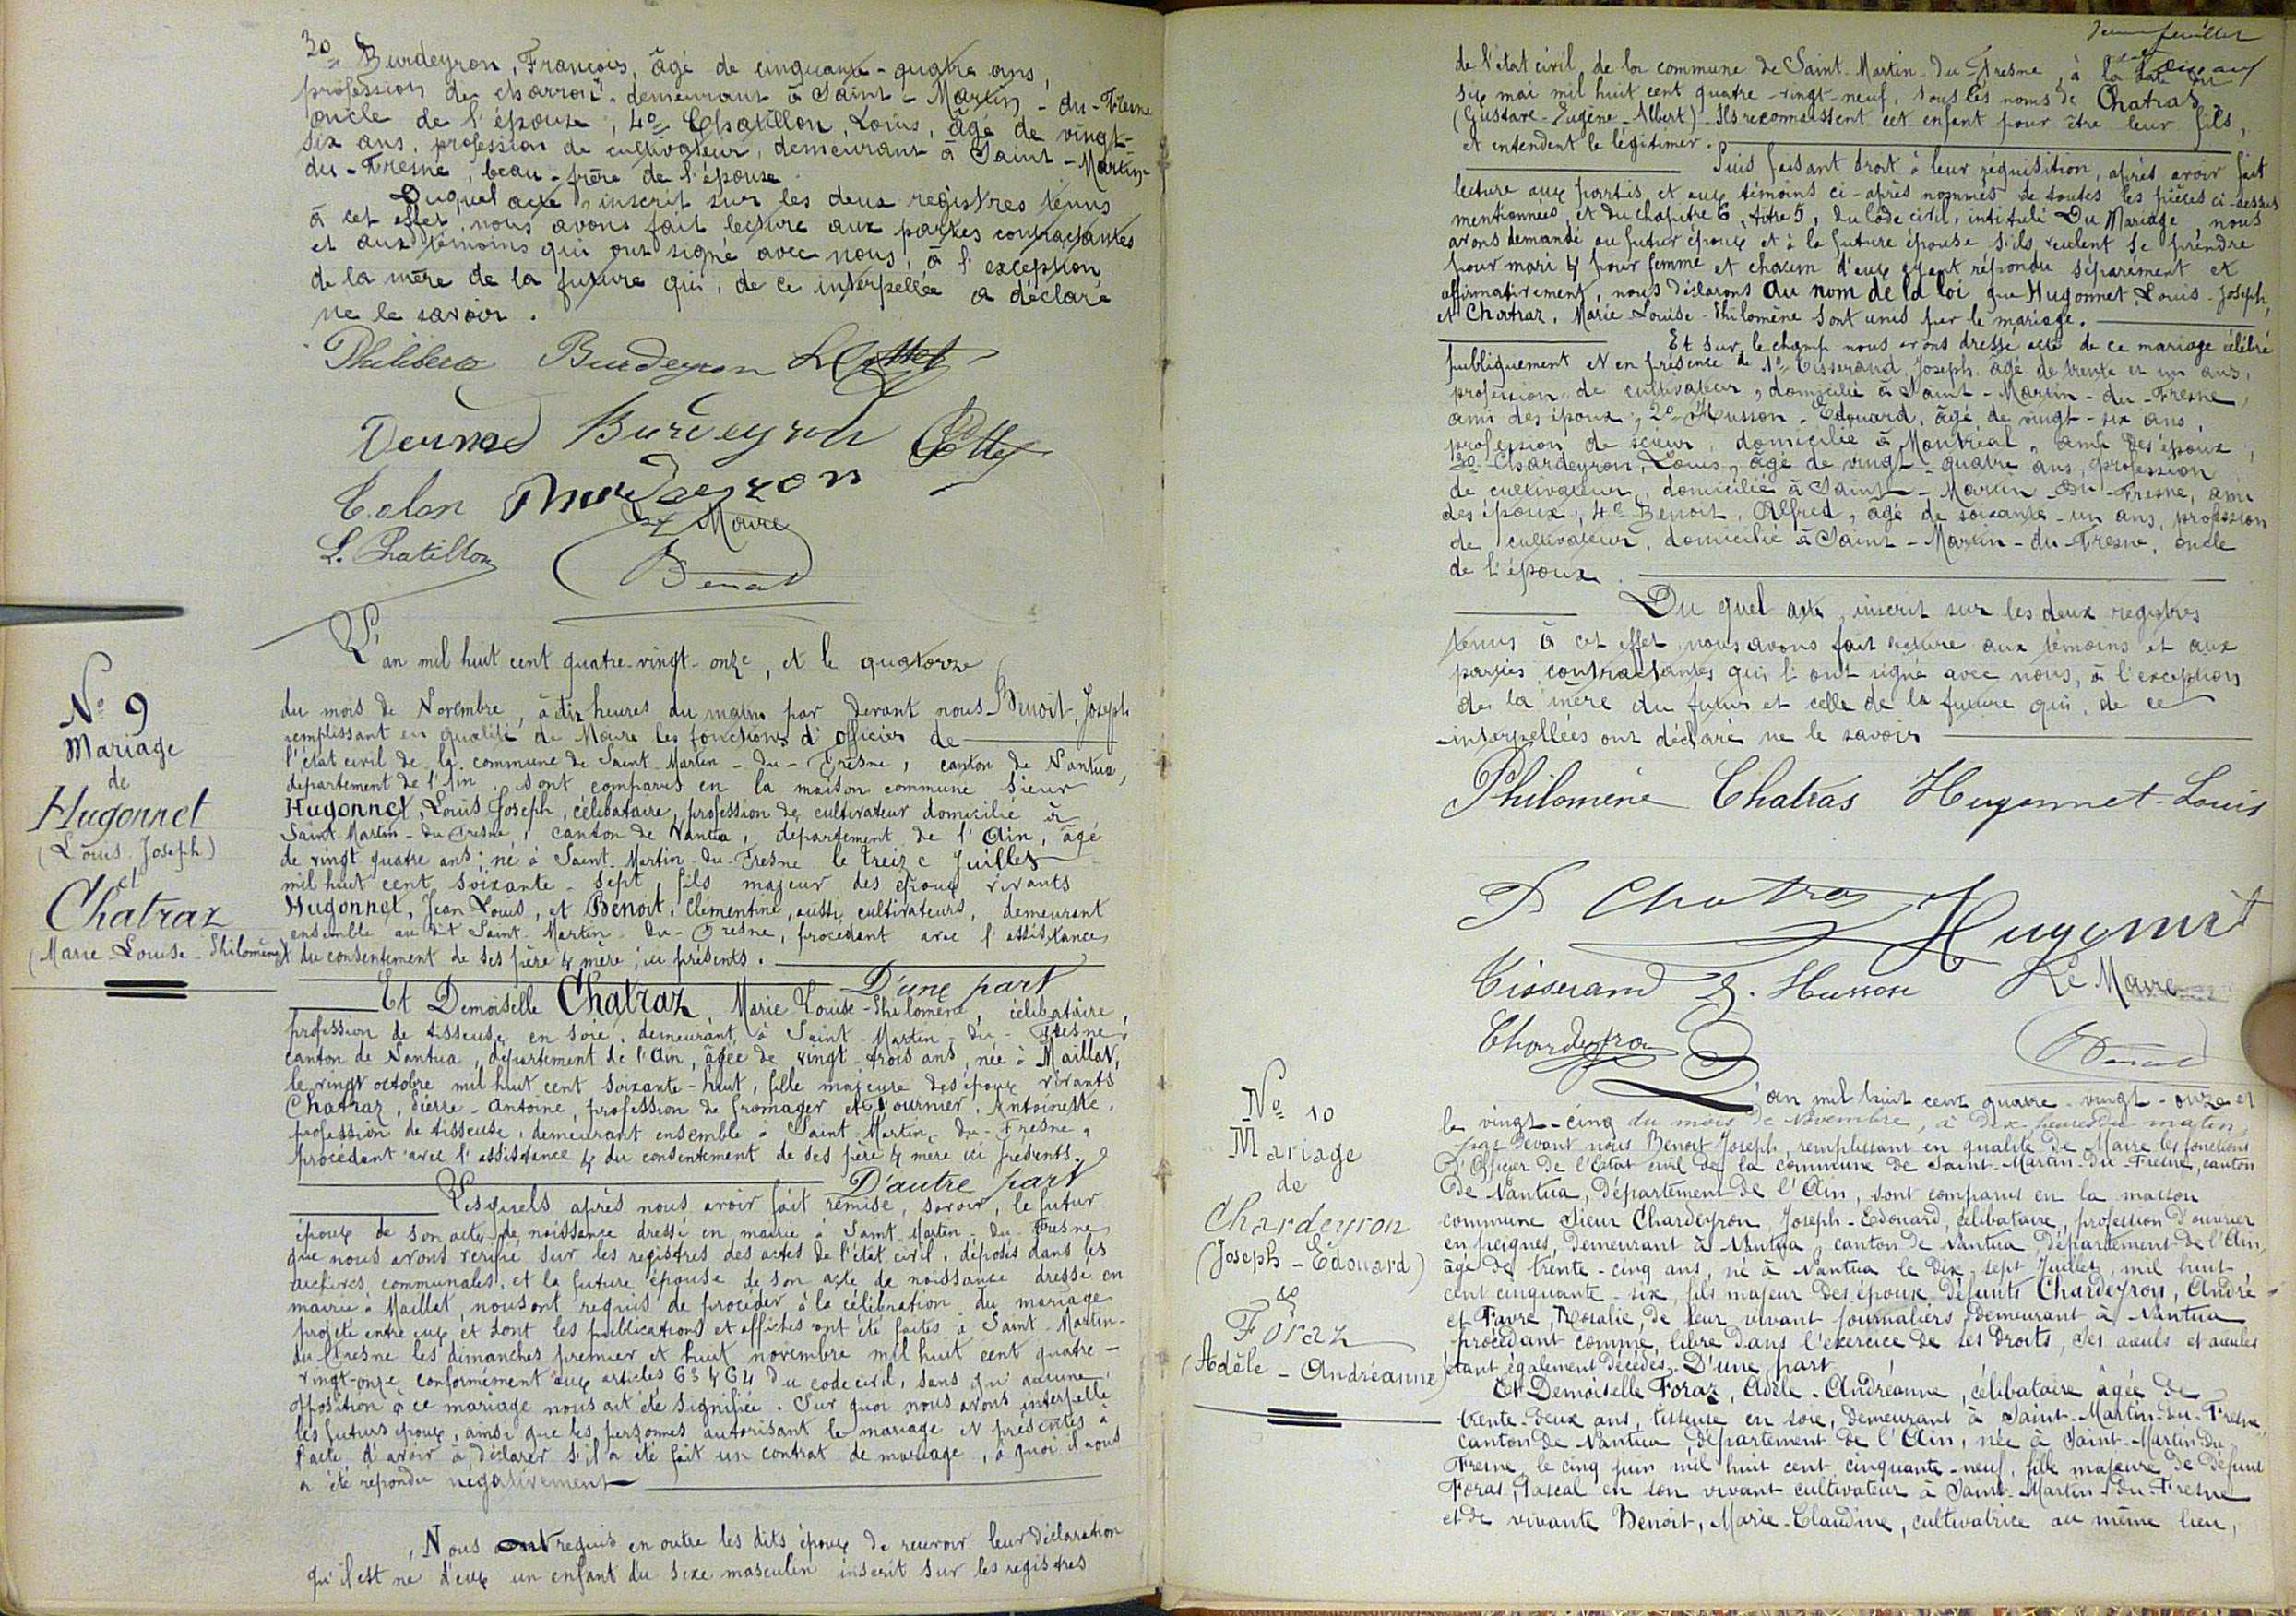 3º Burdeyron, François, âgé de cinquante-quatre ans,
profession de charron, demeurant à Saint-Martin-du-Fresne
oncle de l'épouse, 4º Chatillon, Louis, âgé de vingt-
six ans, profession de cultivateur, demeurant à Saint-Martin-
du-Fresne, beau-frère de l'épouse.
Duquel acte, inscrit sur les deux registres tenus
à cet effet, nous avons fait lecture aux parties contractantes
et aux témoins qui ont signé avec nous, à l'exception
de la mère de la future qui, de ce interpellée a déclaré
ne le savoir.
Burdeyron
Burdeyron Cottey
Burdeyron
Le Maire
L. Chatillon
Benoit
Nº 9
Mariage
de
Hugonnet
(Louis-Joseph)
et
Chatraz
(Marie-Louise-Philomène)
L'an mil huit cent quatre-vingt-onze, et le quatorze
du mois de Novembre, à dix heures du matin par devant nous Benoit, Joseph
remplissant en qualité de Maire les fonctions d'officier de
l'état civil de la commune de Saint-Martin-du-Fresne, canton de Nantua,
département de l'Ain, sont comparus en la maison commune Sieur
Hugonnet, Louis Joseph, célibataire, profession de cultivateur domicilié à
Saint-Martin-du-Fresne, canton de Nantua, département de l'Ain, âgé
de vingt quatre ans; né à Saint-Martin-du-Fresne le treize Juillet
mil huit cent soixante-sept, fils majeur des époux vivants
Hugonnet, Jean Louis, et Benoit, Clémentine, aussi cultivateurs, demeurant
ensemble au dit Saint-Martin-du-Fresne, procédant avec l'assistance
& du consentement de ses père & mère, ici présents.
D'une part
Et Demoiselle Chatraz, Marie Louise-Philomène, célibataire,
profession de tisseuse en soie, demeurant à Saint-Martin-du-Fresne,
canton de Nantua, département de l'Ain, âgée de vingt-trois ans, née à Maillat,
le vingt octobre mil huit cent soixante-huit, fille majeure des époux vivants
Chatraz, Pierre-Antoine, profession de fromager et Fournier, Antoinette,
profession de tisseuse, demeurant ensemble à Saint-Martin-du-Fresne,
procédant avec l'assistance & du consentement de ses père & mère ici présents.
D'autre part
Lesquels après nous avoir fait remise, savoir, le futur
époux de son acte de naissance dressé en mairie à Saint-Martin-du-Fresne
que nous avons vérifié sur les registres des actes de l'état civil, déposés dans les
archives communales, et la future épouse de son acte de naissance dressé en
mairie à Maillat, nous ont requis de procéder à la célébration du mariage
projeté entre eux et dont les publications et affiches ont été faites à Saint-Martin-
du-Fresne les dimanches premier et huit novembre mil huit cent quatre-
vingt-onze conformément aux articles 63 & 64 du code civil, sans qu'aucune
opposition à ce mariage nous ait été signifiée. Sur quoi nous avons interpellé
les futurs époux, ainsi que les personnes autorisant le mariage et présentes à
l'acte d'avoir à déclarer s'il a été fait un contrat de mariage, à quoi il nous
a été répondu négativement
Nous ont requis en outre les dits époux de recevoir leur déclaration
qu'il est né d'eux un enfant du sexe masculin inscrit sur les registres
de l'état civil de la commune de Saint-Martin-du-Fresne, à la date du
six mai mil huit cent quatre-vingt-neuf, sous les noms de Chatraz
(Gustave-Eugène-Albert). Ils reconnaissent cet enfant pour être leur fils,
et entendent le légitimer.
Puis faisant droit à leur réquisition, après avoir fait
lecture aux parties et aux témoins ci-après nommés de toutes les pièces ci-dessus
mentionnées, et du chapitre 6, titre 5, du Code civil, intitulé Du Mariage, nous
avons demandé au futur époux et à la future épouse s'ils veulent se prendre
pour mari & pour femme et chacun d'eux ayant répondu séparément et
affirmativement, nous déclarons au nom de la loi que Hugonnet, Louis-Joseph,
et Chatraz, Marie-Louise-Philomène sont unis par le mariage.
Et sur le champ nous avons dressé acte de ce mariage célébré
publiquement et en présence de 1º Tisserand, Joseph, âgé de trente et un ans,
profession de cultivateur, domicilié à Saint-Martin-du-Fresne,
ami des époux, 2º Husson, Edouard, âgé de vingt-six ans,
profession de scieur, domicilié à Montréal, ami des époux,
3º Chardeyron, Louis, âgé de vingt-quatre ans, profession
de cultivateur, domicilié à Saint-Martin-du-Fresne, ami
des époux, 4º Benoit, Alfred, âgé de soixante-un ans, profession
de cultivateur, domicilié à Saint-Martin-du-Fresne, oncle
de l'époux.
Du quel acte, inscrit sur les deux registres
tenus à cet effet, nous avons fait lecture aux témoins et aux
parties contractantes qui l'ont signé avec nous, à l'exception
de la mère du futur et celle de la future qui, de ce
interpellées ont déclaré ne le savoir
Philomène Chatras Hugonnet-Louis
P Chatras Hugonnet
Tisserand E. Husson Le Maire
Chardeyron Benoit
Nº 10
Mariage
de
Chardeyron
(Joseph-Edouard)
&
Foraz
(Adèle-Andréanne)
L'an mil huit cent quatre-vingt-onze et
le vingt-cinq du mois de Novembre, à dix heures du matin,
par devant nous Benoit Joseph, remplissant en qualité de Maire les fonctions
d'Officier de l'état civil de la commune de Saint-Martin-du-Fresne, canton
de Nantua, Département de l'Ain, sont comparus en la maison
commune Sieur Chardeyron, Joseph-Edouard, célibataire, profession d'ouvrier
en peignes, demeurant à Nantua, canton de Nantua, Département de l'Ain,
âgé de trente-cinq ans, né à Nantua le dix-sept Juillet, mil huit
cent cinquante-six, fils majeur des époux défunts Chardeyron, André
et Favre, Rosalie, de leur vivant journaliers, demeurant à Nantua
procédant comme libre dans l'exercice de ses droits, ses aïeuls et aïeules
étant également décédés. D'une part
Et Demoiselle Foraz, Adèle-Andréanne, célibataire âgée de
trente-deux ans, tisseuse en soie, demeurant à Saint-Martin-du-Fresne,
canton de Nantua, département de l'Ain, née à Saint-Martin-du-
Fresne, le cinq juin mil huit cent cinquante-neuf, fille majeure de défunt
Foras, Pascal en son vivant cultivateur à Saint-Martin-du-Fresne
et de vivante Benoit, Marie-Claudine, cultivatrice au même lieu,